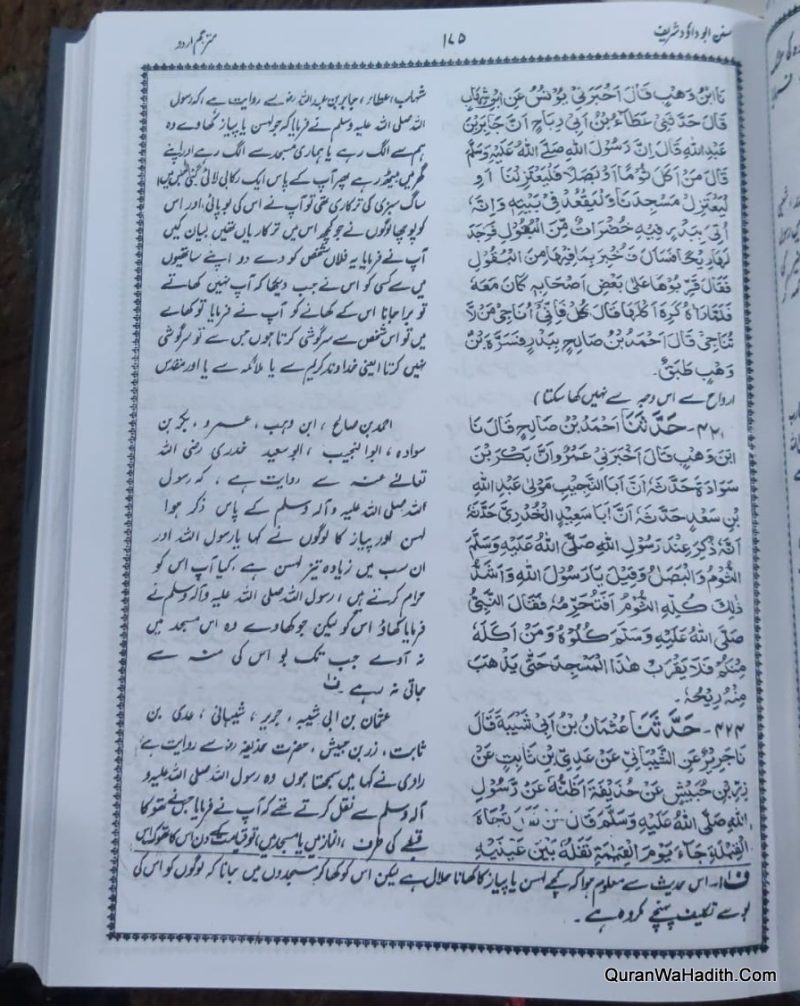 سنن ابو داؤد شریف
۱۷۵
مترجم اردو
نَا ابْنُ وَهْبٍ قَالَ اَخْبَرَنِيْ يُوْنُسُ عَنِ ابْنِ شِهَابٍ
قَالَ حَدَّثَنِيْ عَطَاءُ بْنُ اَبِيْ رِبَاحٍ اَنَّ جَابِرَ بْنَ
عَبْدِ اللهِ قَالَ اِنَّ رَسُوْلَ اللهِ صَلَّى اللهُ عَلَيْهِ وَسَلَّمَ
قَالَ مَنْ اَكَلَ ثُوْمًا اَوْ بَصَلًا فَلْيَعْتَزِلْنَا اَوْ
لِيَعْتَزِلْ مَسْجِدَنَا وَلْيَقْعُدْ فِيْ بَيْتِهٖ وَاِنَّهٗ
اُتِيَ بِبَدْرٍ فِيْهِ خُضْرَاتٌ مِّنَ الْبُقُوْلِ فَوَجَدَ
لَهَا رِيْحًا فَسَاَلَ فَاُخْبِرَ بِمَا فِيْهَا مِنَ الْبُقُوْلِ
فَقَالَ قَرِّبُوْهَا عَلٰى بَعْضِ اَصْحَابِهٖ كَانَ مَعَهٗ
فَلَمَّا رَاٰهُ كَرِهَ اَكْلَهَا قَالَ كُلْ فَاِنِّيْ اُنَاجِيْ مَنْ لَّا
تُنَاجِيْ قَالَ اَحْمَدُ بْنُ صَالِحٍ بِبَدْرٍ فَسَّرَهٗ ابْنُ
وَهْبٍ طَبَقٌ۔
حَدَّثَنَا اَحْمَدُ بْنُ صَالِحٍ قَالَ نَا
ابْنُ وَهْبٍ قَالَ اَخْبَرَنِيْ عَمْرٌو اَنَّ بَكْرَ بْنَ
سَوَادَةَ حَدَّثَهٗ اَنَّ اَبَا النَّجِيْبِ مَوْلٰى عَبْدِ اللهِ
بْنِ سَعْدٍ حَدَّثَهٗ اَنَّ اَبَا سَعِيْدٍ الْخُدْرِيَّ حَدَّثَهٗ
اَنَّهٗ ذُكِرَ عِنْدَ رَسُوْلِ اللهِ صَلَّى اللهُ عَلَيْهِ وَسَلَّمَ
الثُّوْمُ وَالْبَصَلُ وَقِيْلَ يَا رَسُوْلَ اللهِ وَاَشَدُّ
ذٰلِكَ كُلِّهِ الثُّوْمُ اَفَتُحَرِّمُهٗ فَقَالَ النَّبِيُّ
صَلَّى اللهُ عَلَيْهِ وَسَلَّمَ كُلُوْهُ وَمَنْ اَكَلَهٗ
مِنْكُمْ فَلَا يَقْرَبْ هٰذَا الْمَسْجِدَ حَتّٰى يَذْهَبَ
مِنْهُ رِيْحُهٗ۔
۴۲۴۔ حَدَّثَنَا عُثْمَانُ بْنُ اَبِيْ شَيْبَةَ قَالَ
نَا جَرِيْرٌ عَنِ الشَّيْبَانِيِّ عَنْ عَدِيِّ بْنِ ثَابِتٍ عَنْ
زِرِّ بْنِ حُبَيْشٍ عَنْ حُذَيْفَةَ اَظُنُّهٗ عَنْ رَّسُوْلِ
اللهِ صَلَّى اللهُ عَلَيْهِ وَسَلَّمَ قَالَ مَنْ تَفَلَ تُجَاهَ
الْقِبْلَةِ جَاءَ يَوْمَ الْقِيٰمَةِ تَفْلُهٗ بَيْنَ عَيْنَيْهِ
شہاب، عطا، جابر بن عبداللہ رضؓ سے روایت ہے کہ رسول
اللہ صلی اللہ علیہ وسلم نے فرمایا کہ جو لہسن یا پیاز کھاوے وہ
ہم سے الگ رہے یا ہماری مسجد سے الگ رہے اور اپنے
گھر میں بیٹھ رہے پھر آپ کے پاس ایک رکابی لائی گئی جس میں
ساگ سبزی کی ترکاری تھی تو آپ نے اس کی بو پائی، اور اس
کو پوچھا لوگوں نے جو کچھ اس میں ترکاریاں تھیں بیان کیں
آپ نے فرمایا یہ فلاں شخص کو دے دو اپنے ساتھیوں
میں سے کسی کو اس نے جب دیکھا کہ آپ نہیں کھاتے
تو برا جانا اس کے کھانے کو آپ نے فرمایا تو کھا لے
میں تو اس شخص سے سرگوشی کرتا ہوں جس سے تو سرگوشی
نہیں کرتا (یعنی خداوند کریم سے یا ملائکہ سے یا اور مقدس
ارواح سے اس وجہ سے نہیں کھا سکتا)
احمد بن صالح، ابن وہب، عمرو، بکر بن
سوادہ، ابوالنجیب، ابوسعید خدری رضی اللہ
تعالےٰ عنہ سے روایت ہے، کہ رسول
اللہ صلی اللہ علیہ وآلہ وسلم کے پاس ذکر ہوا
لہسن اور پیاز کا لوگوں نے کہا یا رسول اللہ اور
ان سب میں زیادہ تیز لہسن ہے کیا آپ اس کو
حرام کرتے ہیں، رسول اللہ صلی اللہ علیہ وآلہ وسلم نے
فرمایا کھاؤ اس کو لیکن جو کھاوے وہ اس مسجد میں
نہ آوے جب تک بو اس کی منہ سے
جاتی نہ رہے۔ ف۱
عثمان بن ابی شیبہ، جریر، شیبانی، عدی بن
ثابت، زر بن حبیش، حضرت حذیفہ رضؓ سے روایت ہے
راوی نے کہا میں سمجھتا ہوں وہ رسول اللہ صلی اللہ علیہ و
آلہ وسلم سے نقل کرتے تھے کہ آپ نے فرمایا جس نے تھوکا
قبلے کی طرف، (نماز میں یا مسجد میں) تو قیامت کے دن اس کا تھوک اس
ف۱۔ اس حدیث سے معلوم ہوا کہ کچے لہسن یا پیاز کا کھانا حلال ہے لیکن اس کو کھا کر مسجدوں میں جانا کہ لوگوں کو اس کی
بو سے تکلیف پہنچے مکروہ ہے۔
QuranWaHadith.Com